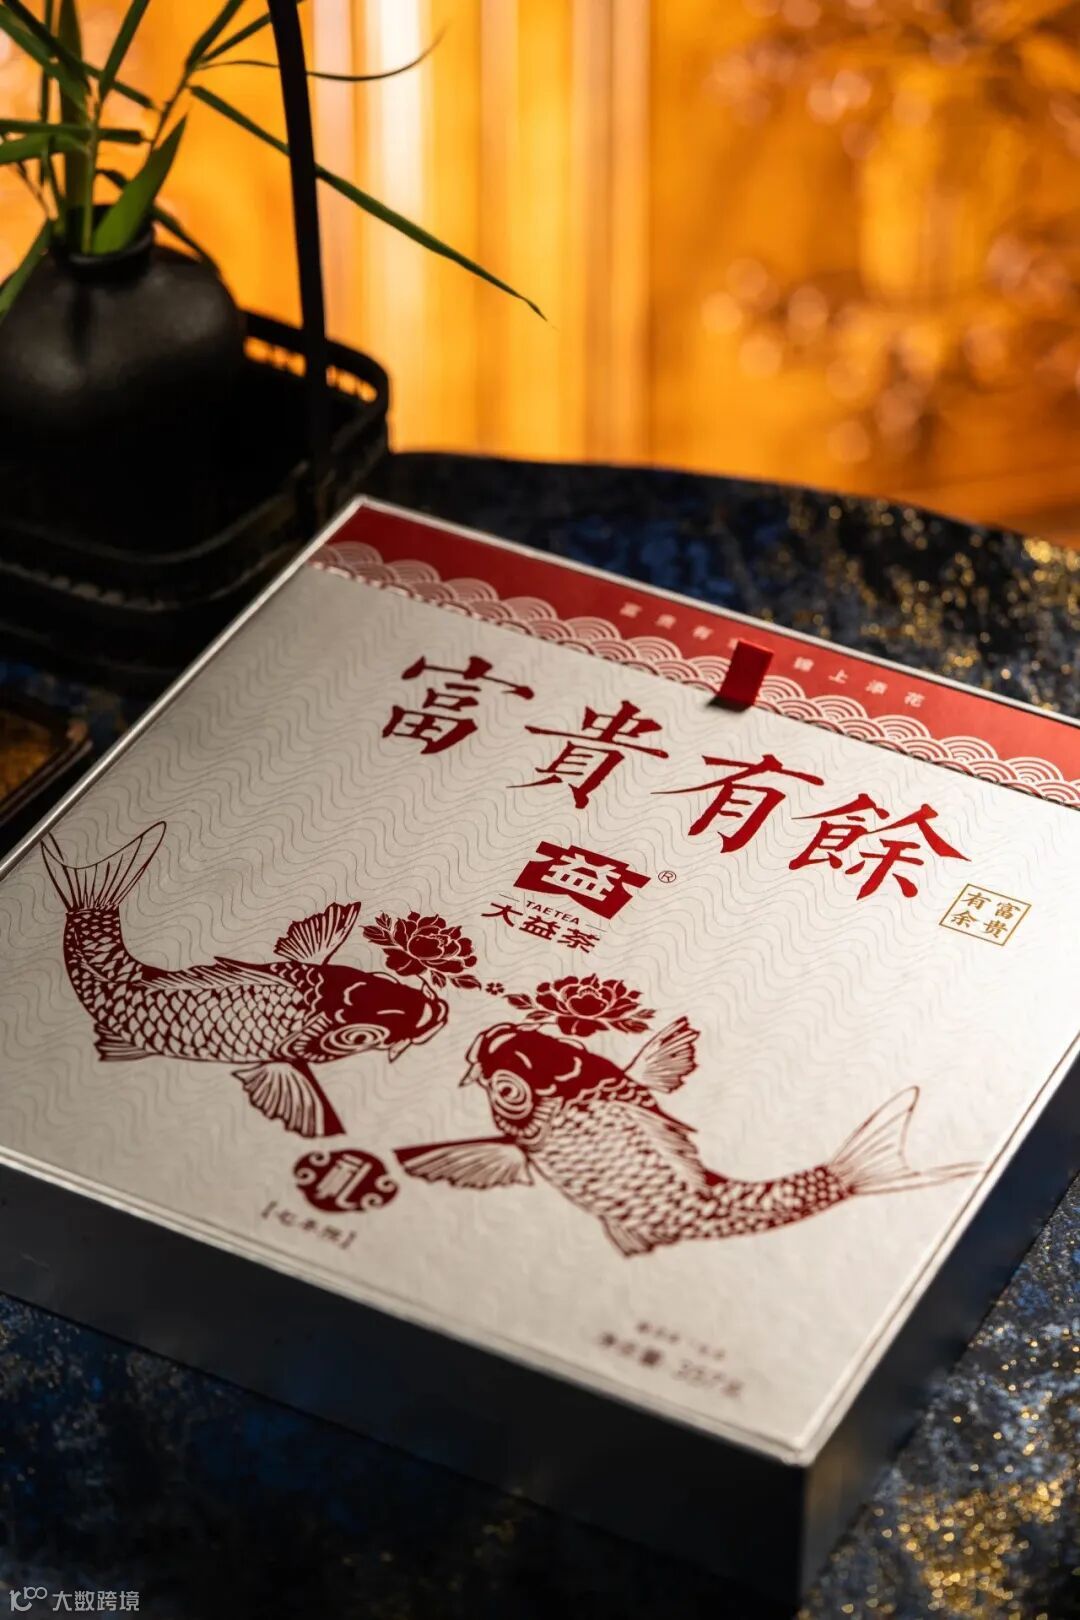 富貴有
錦上添花
富貴有餘
益®
TAETEA
大益茶
富貴
有余
礼
【七年陈】
净含量：357克
大数跨境